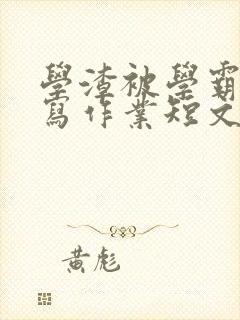 學渣被學霸
寫作業短文
黃彪